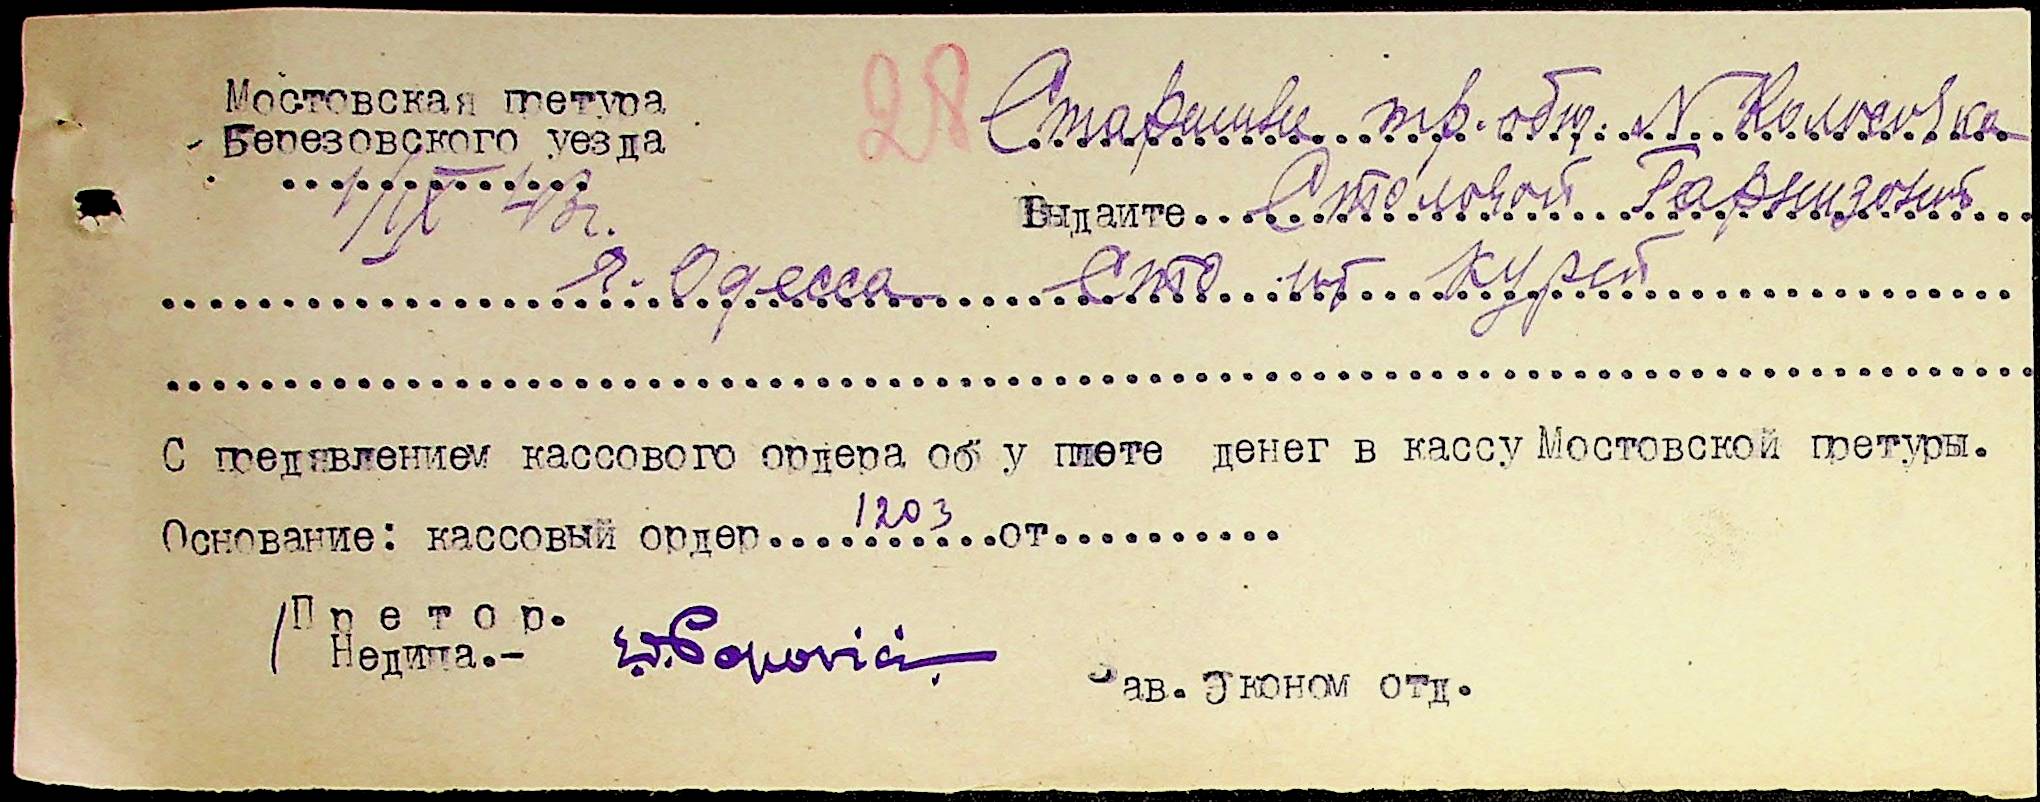 Мостовская претура
Березовского уезда
1/IX 43г.
28
Старшине тр. общ. N Колосовка
Выдайте Столовой Гарнизона
г. Одесса Сто шт курей
С предявлением кассового ордера об у плете денег в кассу Мостовской претуры.
Основание: кассовый ордер...1203...от...........
П р е т о р.
Недила.-
Popovici
Зав. Эконом отд.